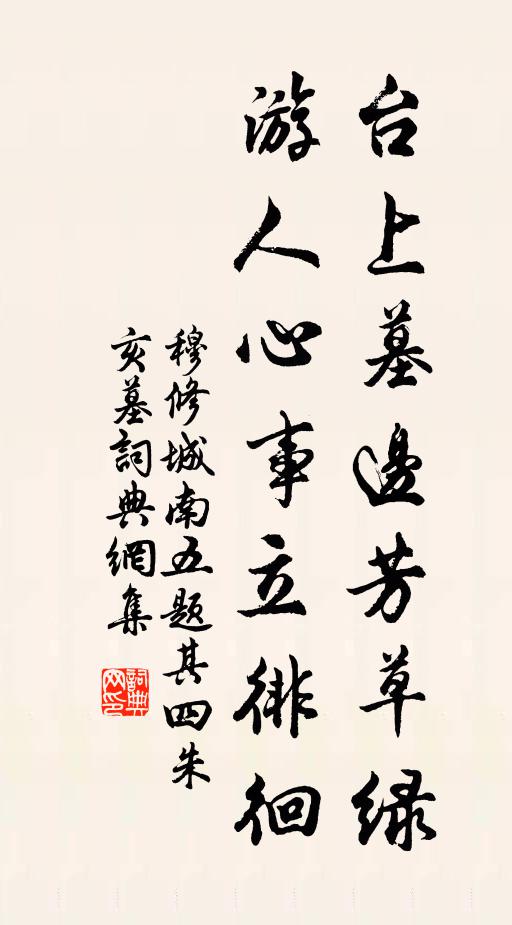 台上墓邊芳草綠
游人心事立徘徊
穆修城南五題其四朱
亥墓詞典網集
詞典
网印